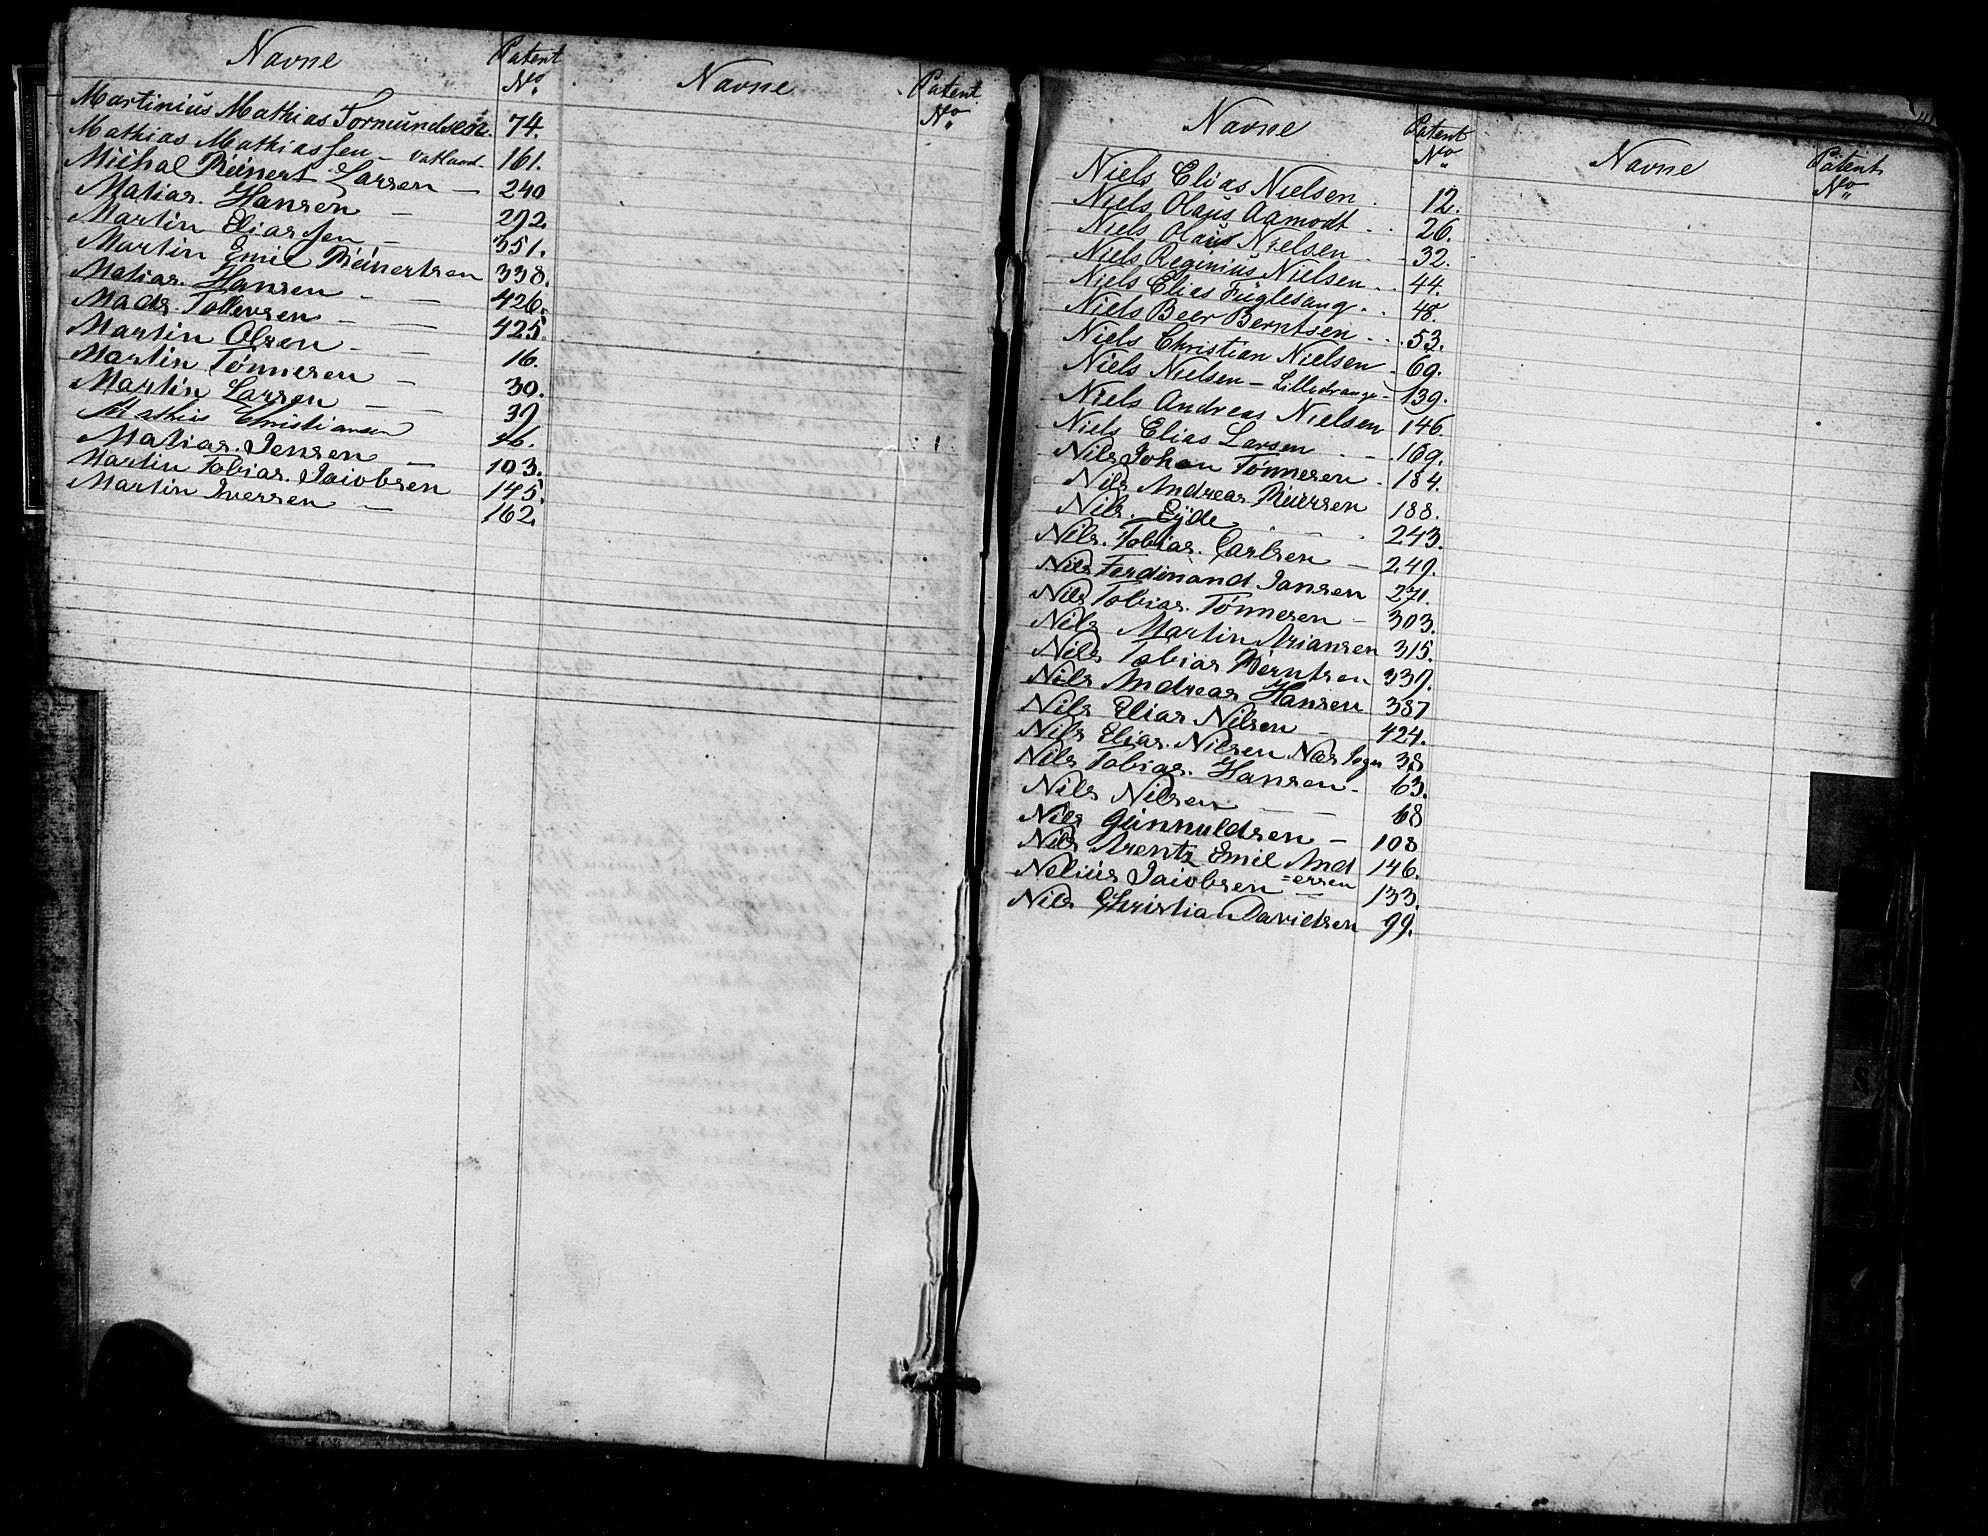 Navne Patent No. Navne Patent No.
Martinius Mathias Tormundsen. 74.
Mathias Mathiassen - Vatland 161.
Michal Reinert Larsen — 240
Matias. Hansen — 292.
Martin Eliassen — 351.
Martin Emil Reinertsen 338.
Matias. Hansen - — 426.
Mads. Tollevsen - — 425.
Martin Olsen - — 16.
Martin Tønnesen — 30.
Martin Larsen — — 39
Mathis Christiansen 46.
Matias. Jensen — 103.
Martin Tobias. Jacobsen 145.
Martin Iversen — 162.
Navne Patent No. Navne Patent No.
Niels Elias Nielsen . 12.
Niels Olaus Aamodt . . 26.
Niels Olaus Nielsen . . 32.
Niels Reginius Nielsen . . 44.
Niels Elias Fuglesang . . 48.
Niels Beer Berntsen . . . 53.
Niels Christian Nielsen . 69.
Niels Nielsen — Lilledrange - 139.
Niels Andreas Nielsen 146.
Niels Elias Larsen . - 169.
Nils Johan Tønnesen . 184.
Nils Andreas Reiersen 188.
Nils. Eyde - — . 243.
Nils. Tobias. Carlsen — 249.
Nils Ferdinand Jansen 271.
Nils Tobias. Tønnesen — 303.
Nils Martin Ariansen 315.
Nils Tobias Berntsen 339.
Nils Andreas Hansen 387
Nils Elias Nilsen — 424.
Nils Elias. Nilsen Næs Sogn 38
Nils Tobias. Hansen - 63.
Nils Nilsen — — 68
Nils Gunnuldsen — 108
Nils Arentz Emil And 146.
=ersen
Nelius Jacobsen — 133.
Nils Christian Davidsen 99.